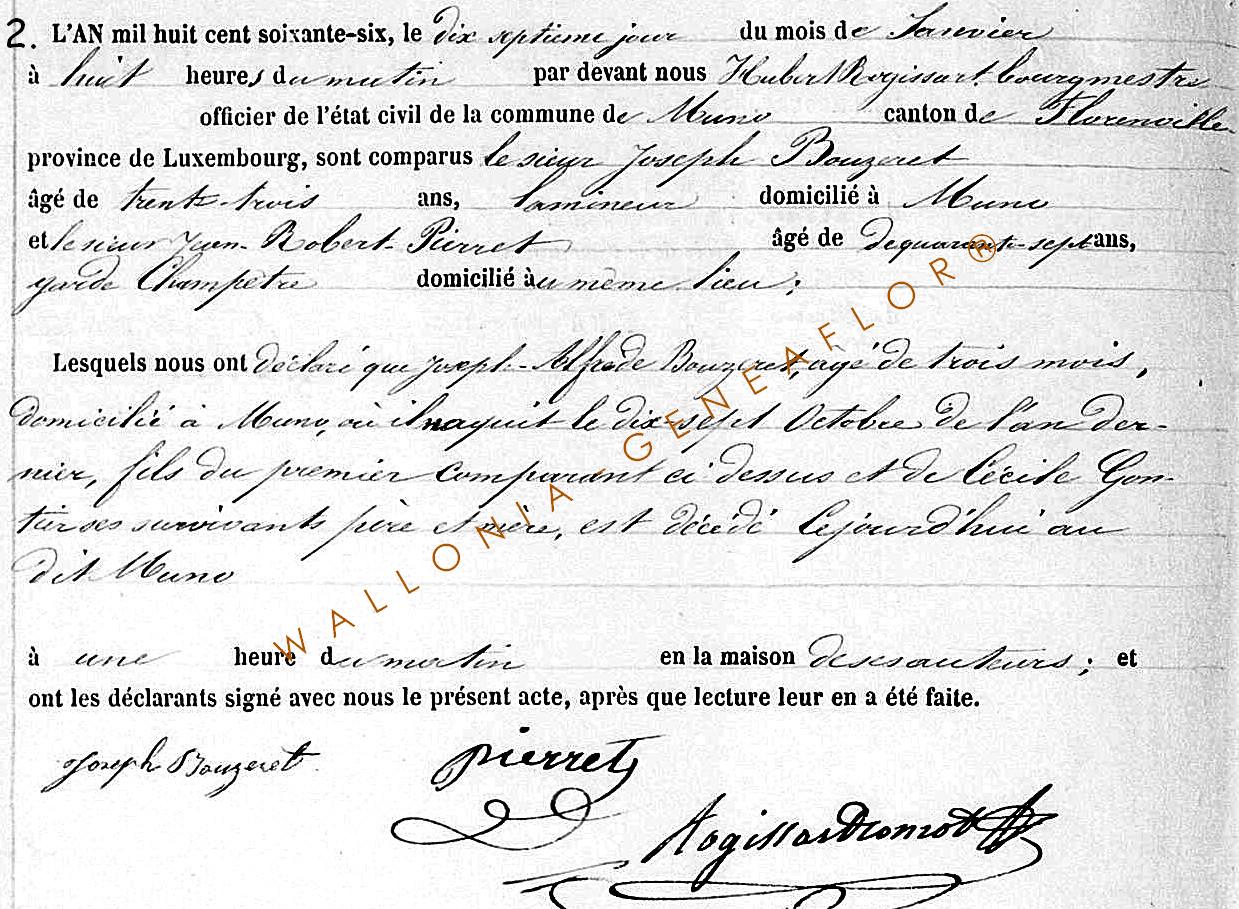 2. L'AN mil huit cent soixante-six, le dix septième jour du mois de Janvier
à huit heures du matin par devant nous Hubert Rogissart bourgmestre
officier de l'état civil de la commune de Muno canton de Florenville
province de Luxembourg, sont comparus le sieur Joseph Bouzeret
âgé de trente-trois ans, lamineur domicilié à Muno
et le sieur Jean-Robert Pierret âgé de de quarante-sept ans,
garde Champêtre domicilié au même lieu ;
Lesquels nous ont déclaré que Joseph-Alfrede Bouzeret, agé de trois mois,
domicilié à Muno, où il naquit le dix sept Octobre de l'an der-
nier, fils du premier comparant ci dessus et de Cécile Gon-
tier ses survivants père et mère, est décédé cejourd'hui au
dit Muno
à une heure du matin en la maison de ses auteurs ; et
ont les déclarants signé avec nous le présent acte, après que lecture leur en a été faite.
Joseph Bouzeret
pierret
Rogissart
WALLONIA-GENEAFLOR®